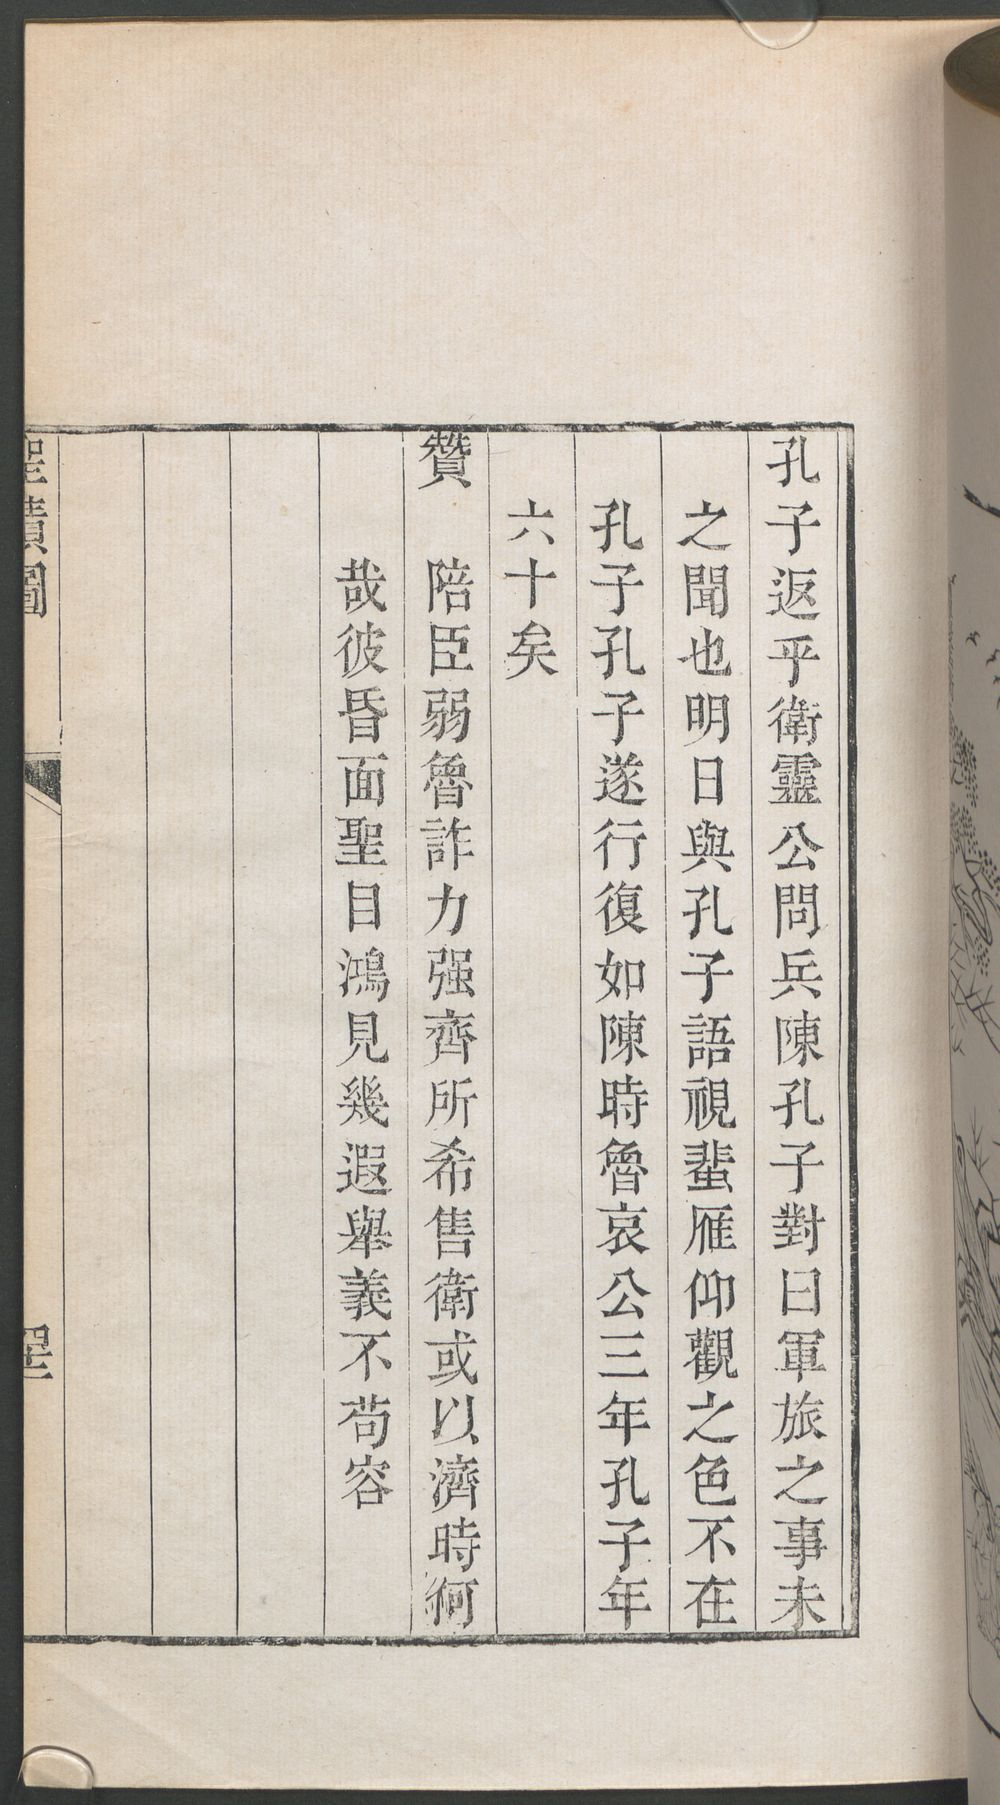 孔子返乎衛靈公問兵陳孔子對曰軍旅之事未
之聞也明日與孔子語視蜚雁仰觀之色不在
孔子孔子遂行復如陳時魯哀公三年孔子年
六十矣
贊 陪臣弱魯詐力强齊所希售衛或以濟時何
哉彼昏面聖目鴻見幾遐舉義不苟容
聖蹟圖